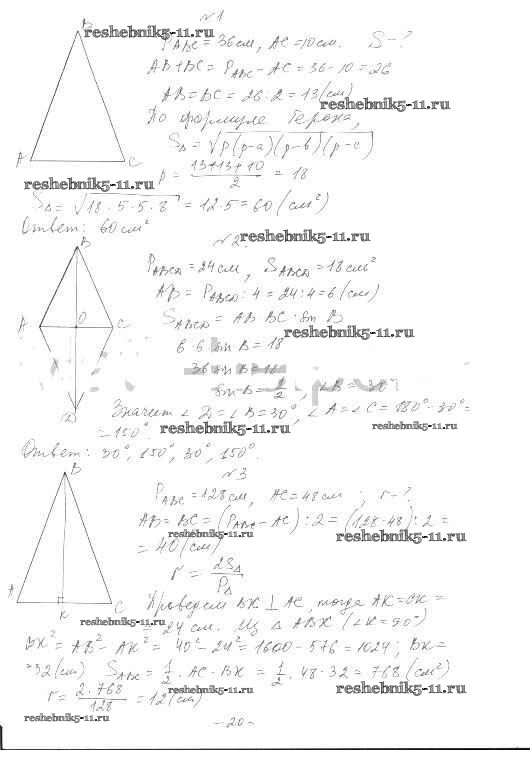 №1
B
reshebnik5-11.ru
P_ABC = 36 см, AC = 10 см. S - ?
AB + BC = P_ABC - AC = 36 - 10 = 26
AB = BC = 26 : 2 = 13 (см)
reshebnik5-11.ru
По формуле Герона,
S_Δ = √p(p-a)(p-b)(p-c)
A C
p = (13+13+10)/2 = 18
reshebnik5-11.ru
S_Δ = √18·5·5·8 = 12·5 = 60 (см²)
Ответ: 60 см²
№2
reshebnik5-11.ru
B
P_ABCD = 24 см, S_ABCD = 18 см²
AB = P_ABCD : 4 = 24 : 4 = 6 (см)
A O C
S_ABCD = AB · BC · sin B
reshebnik5-11.ru
6 · 6 sin B = 18
36 sin B = 18
sin B = 1/2, ∠B = 30°
D
Значит ∠D = ∠B = 30°, ∠A = ∠C = 180° - 30° =
= 150°.
reshebnik5-11.ru
reshebnik5-11.ru
Ответ: 30°, 150°, 30°, 150°.
№3
B
P_ABC = 128 см, AC = 48 см; r - ?
AB = BC = (P_ABC - AC) : 2 = (128 - 48) : 2 =
= 40 (см)
reshebnik5-11.ru
reshebnik5-11.ru
r = 2S_Δ/P_Δ
A K C
Проведем BK ⊥ AC, тогда AK = CK =
reshebnik5-11.ru
= 24 см. Из Δ ABK (∠K = 90°)
BK² = AB² - AK² = 40² - 24² = 1600 - 576 = 1024; BK =
= 32 (см) S_ABC = 1/2 · AC · BK = 1/2 · 48 · 32 = 768 (см²)
r = 2·768/128 = 12 (см)
reshebnik5-11.ru
reshebnik5-11.ru
reshebnik5-11.ru
- 20 -